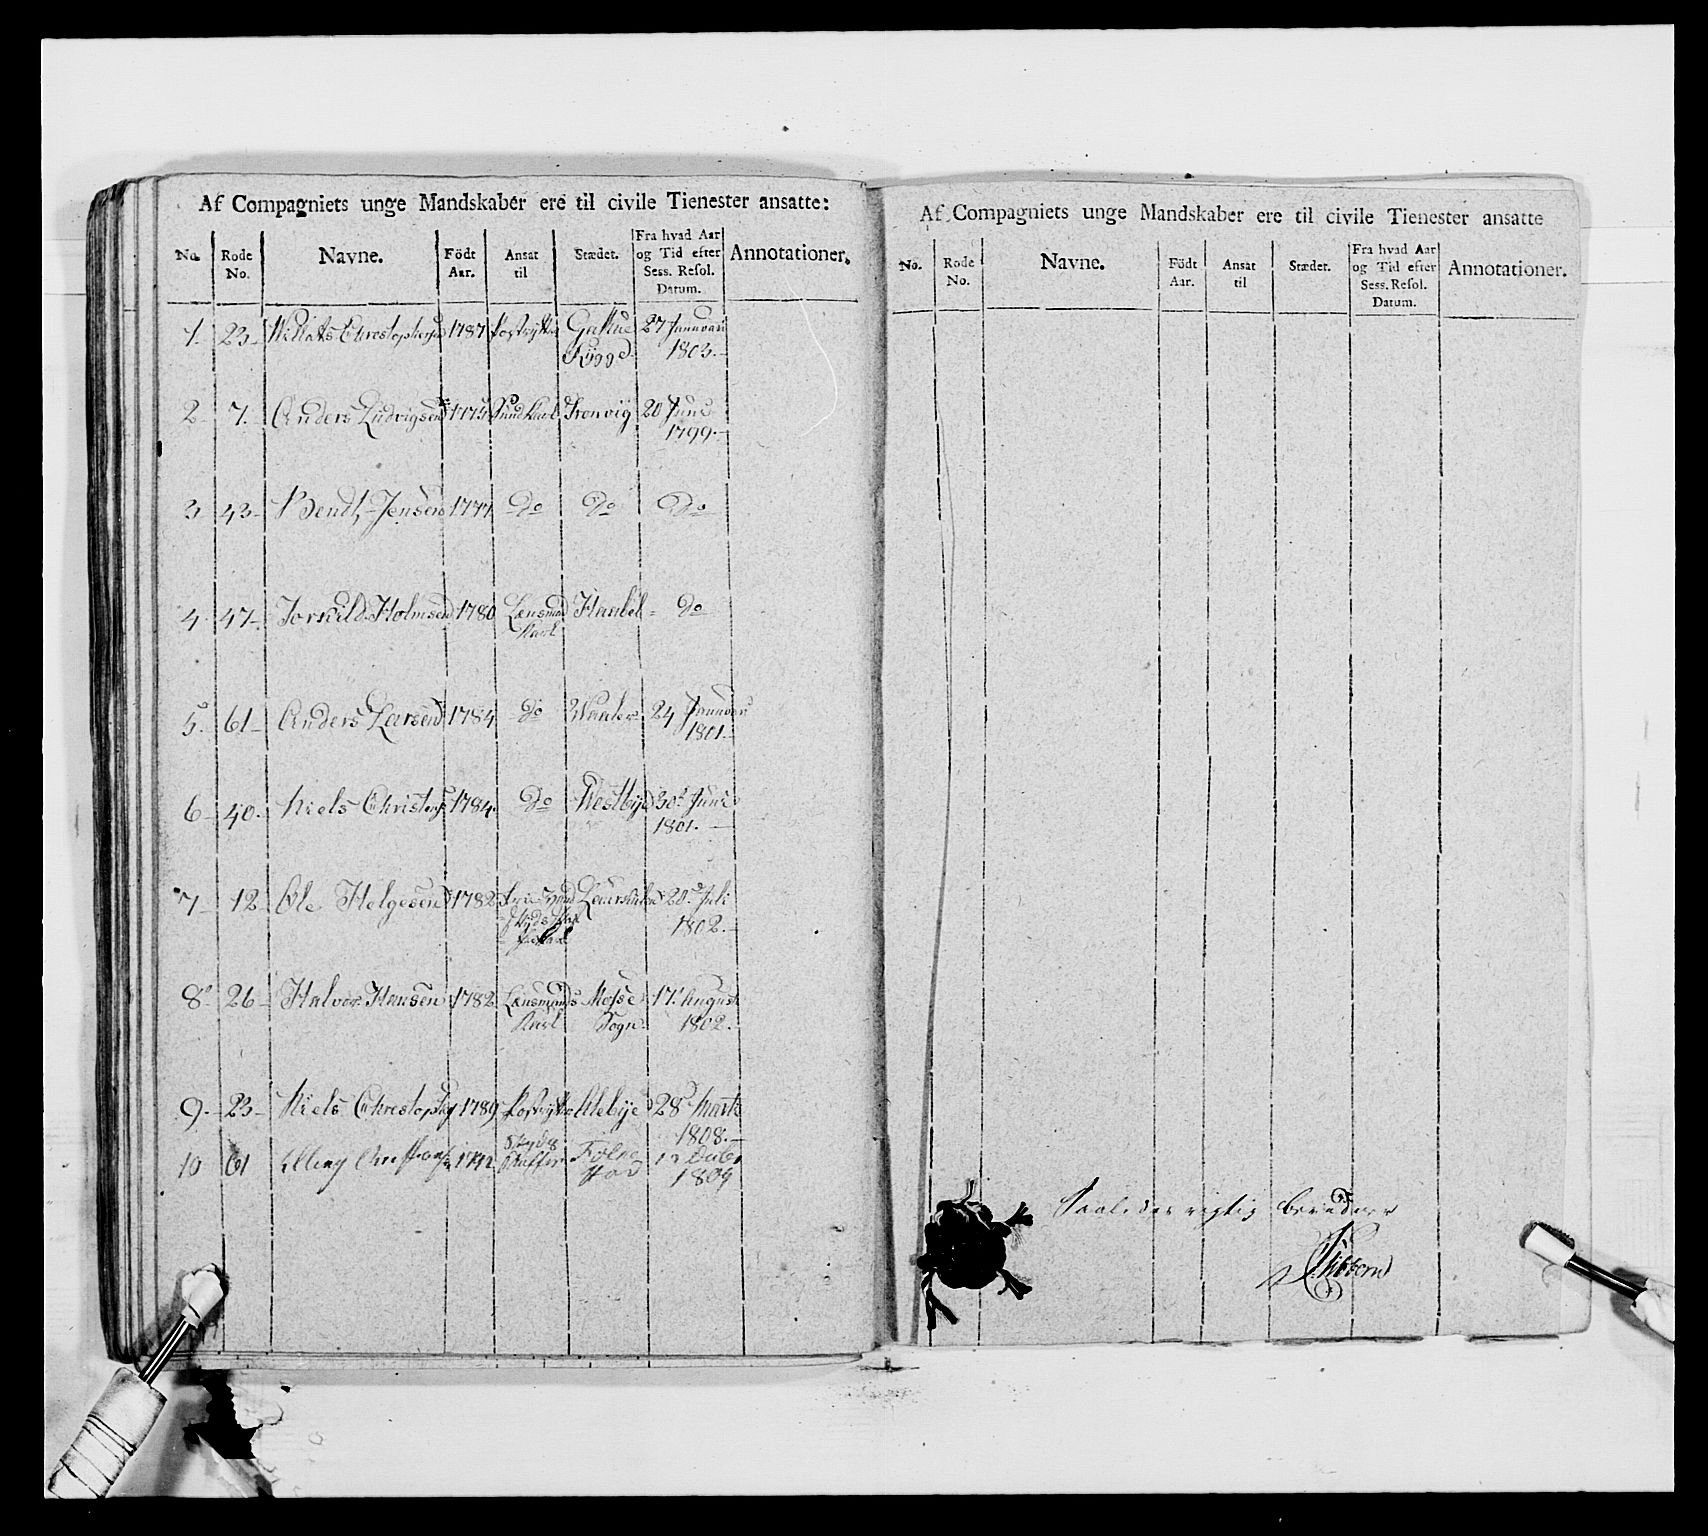 Af Compagniets unge Mandskaber ere til civile Tienester ansatte:
No. Rode No. Navne. Födt Aar. Ansat til Stædet. Fra hvad Aar og Tid efter Sess. Resol. Datum. Annotationer.
1. 23. Christophersen 1787 27 Januari
1803.
2. 7. Anders Ludvigsen Sundkarl 20 Juni
1799.
3 43 Bendt Jensen 1777 Do Do Do
4. 47 Torkild Holmsen 1780 Lensmd Haabøl Do
Karl
5. 61 Anders Larsen 1784 Do Waaler 24 Januari
1801.
6 40. Niels Christens 1784. Do Westbye 30 Juni
1801.
7 12 Ole Helgesen 1782 20 Juli
1802.
8 26 Halvor Hansen 1782 Lensmands Mosse 17 August
Karl Sogn 1802.
9. 23 Niels Christoph 1789 28 Marti
1808.
10 61 Elling Skyds
Skaffer 1809
Af Compagniets unge Mandskaber ere til civile Tienester ansatte
No. Rode No. Navne. Födt Aar. Ansat til Stædet. Fra hvad Aar og Tid efter Sess. Resol. Datum. Annotationer.
Saaledes rigtig
Sibbern